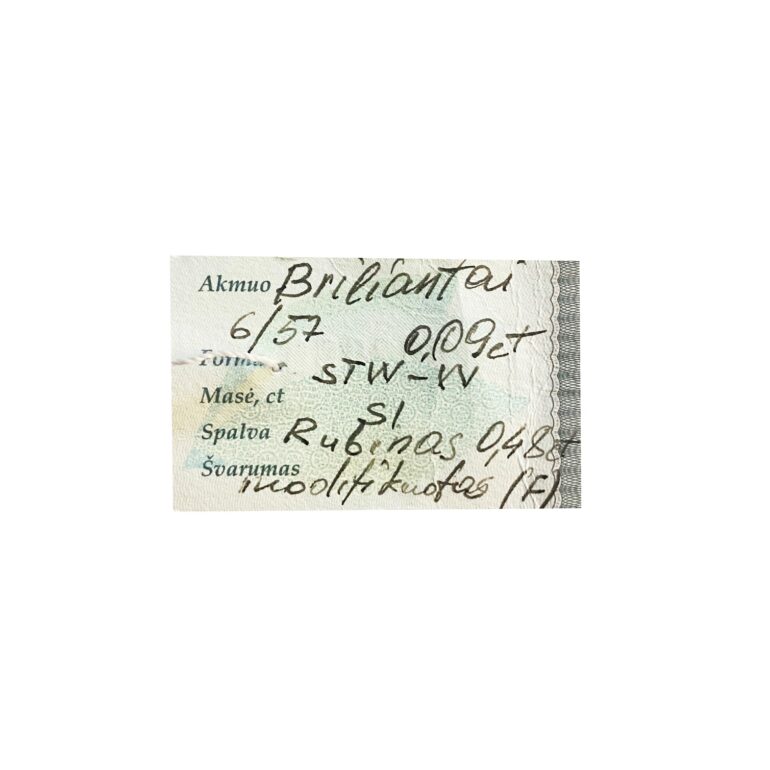 Akmuo Briliantai
6/57 0,09ct
Forma
STW-W
Masė, ct
SI
Spalva Rubinas 0,48ct
Švarumas
modifikuotas (F)